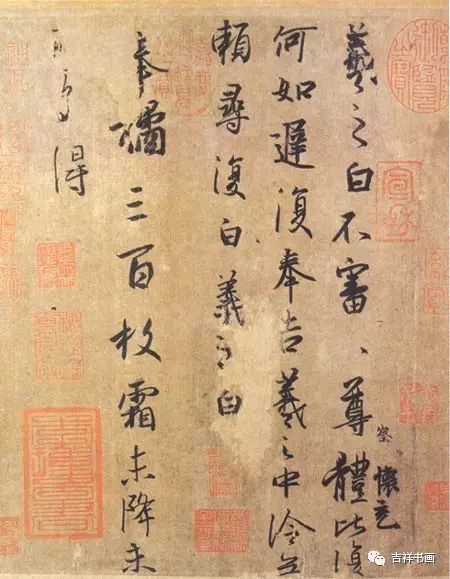 羲之白不審、尊體比復
察 懷充
何如遲復奉告羲之中冷無
賴尋復白羲之白
奉橘三百枚霜未降未
可多得
吉祥书画